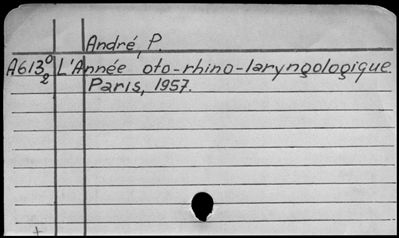 André, P.
A613⁰₂ L'Année oto-rhino-laryngologique.
Paris, 1957.
+